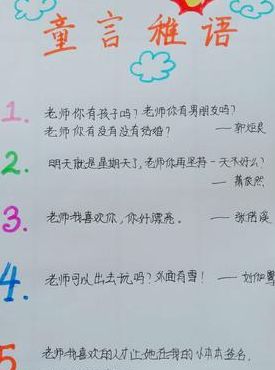 童言稚语
1. 老师你有孩子吗？老师你有男朋友吗？
老师你有没有没有结婚？ ——郭炬良
2. 明天就是星期天了，老师你再坚持一天好么？
——蔡依然
3. 老师我喜欢你，你好漂亮。 ——张语溪
4. 老师可以出去玩吗？外面有雪！ ——刘伽
5 老师我喜欢的人才让她在我的小本本签名。